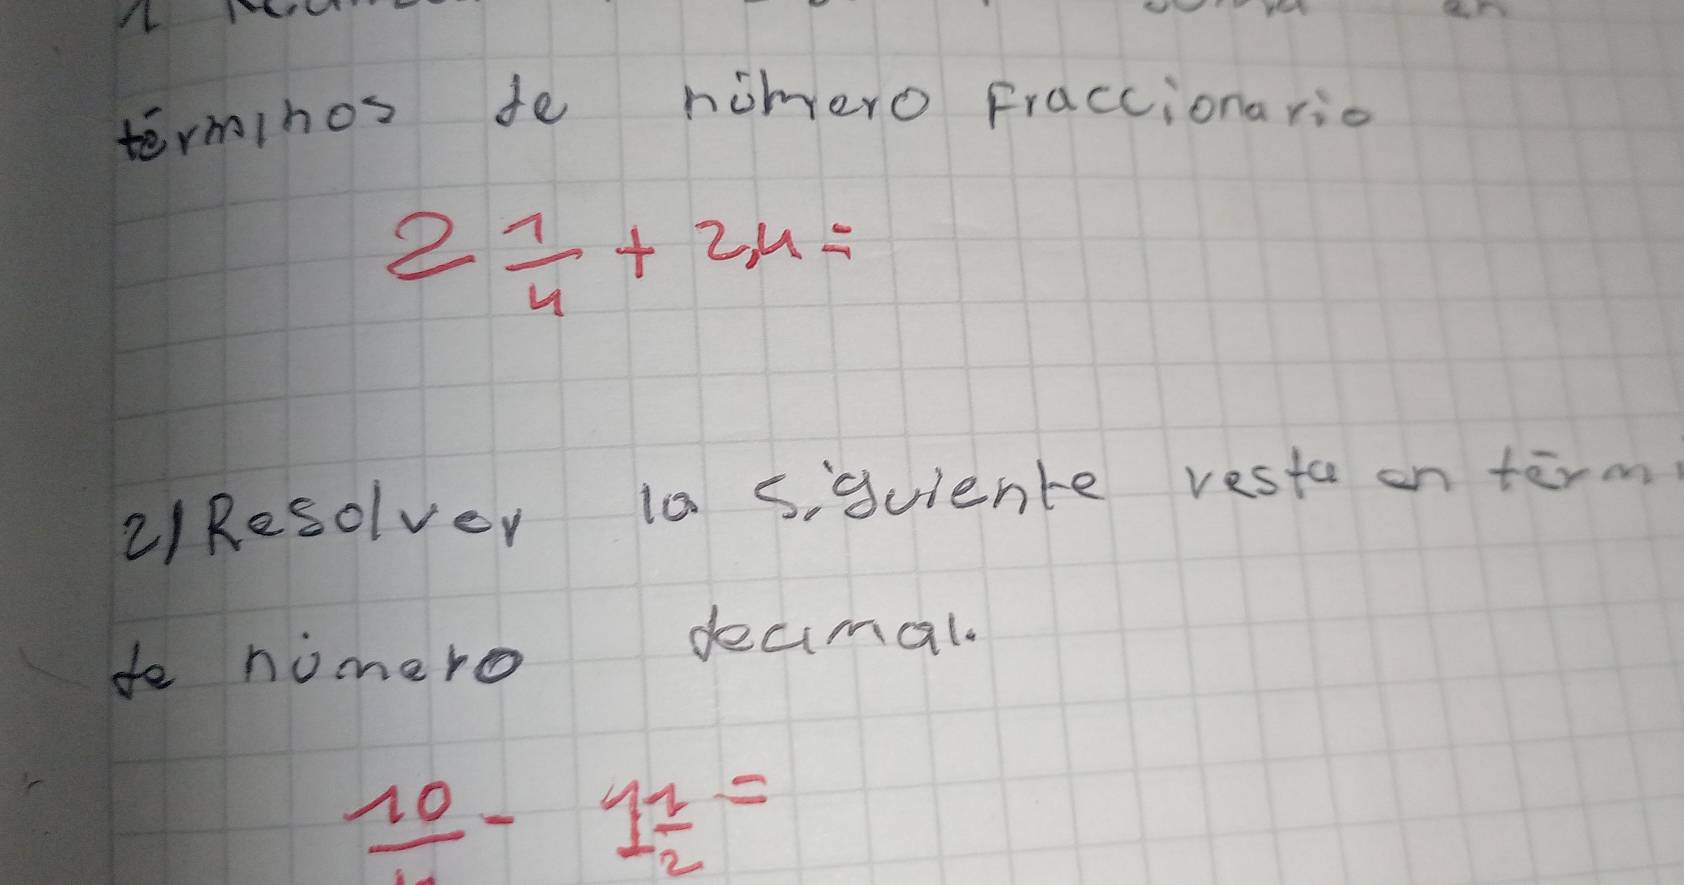 términos de número Fraccionario
2 1/4 + 2,4 =
2) Resolver la siguiente resta en térmi
de número decimal.
10 - 1 1/2 =